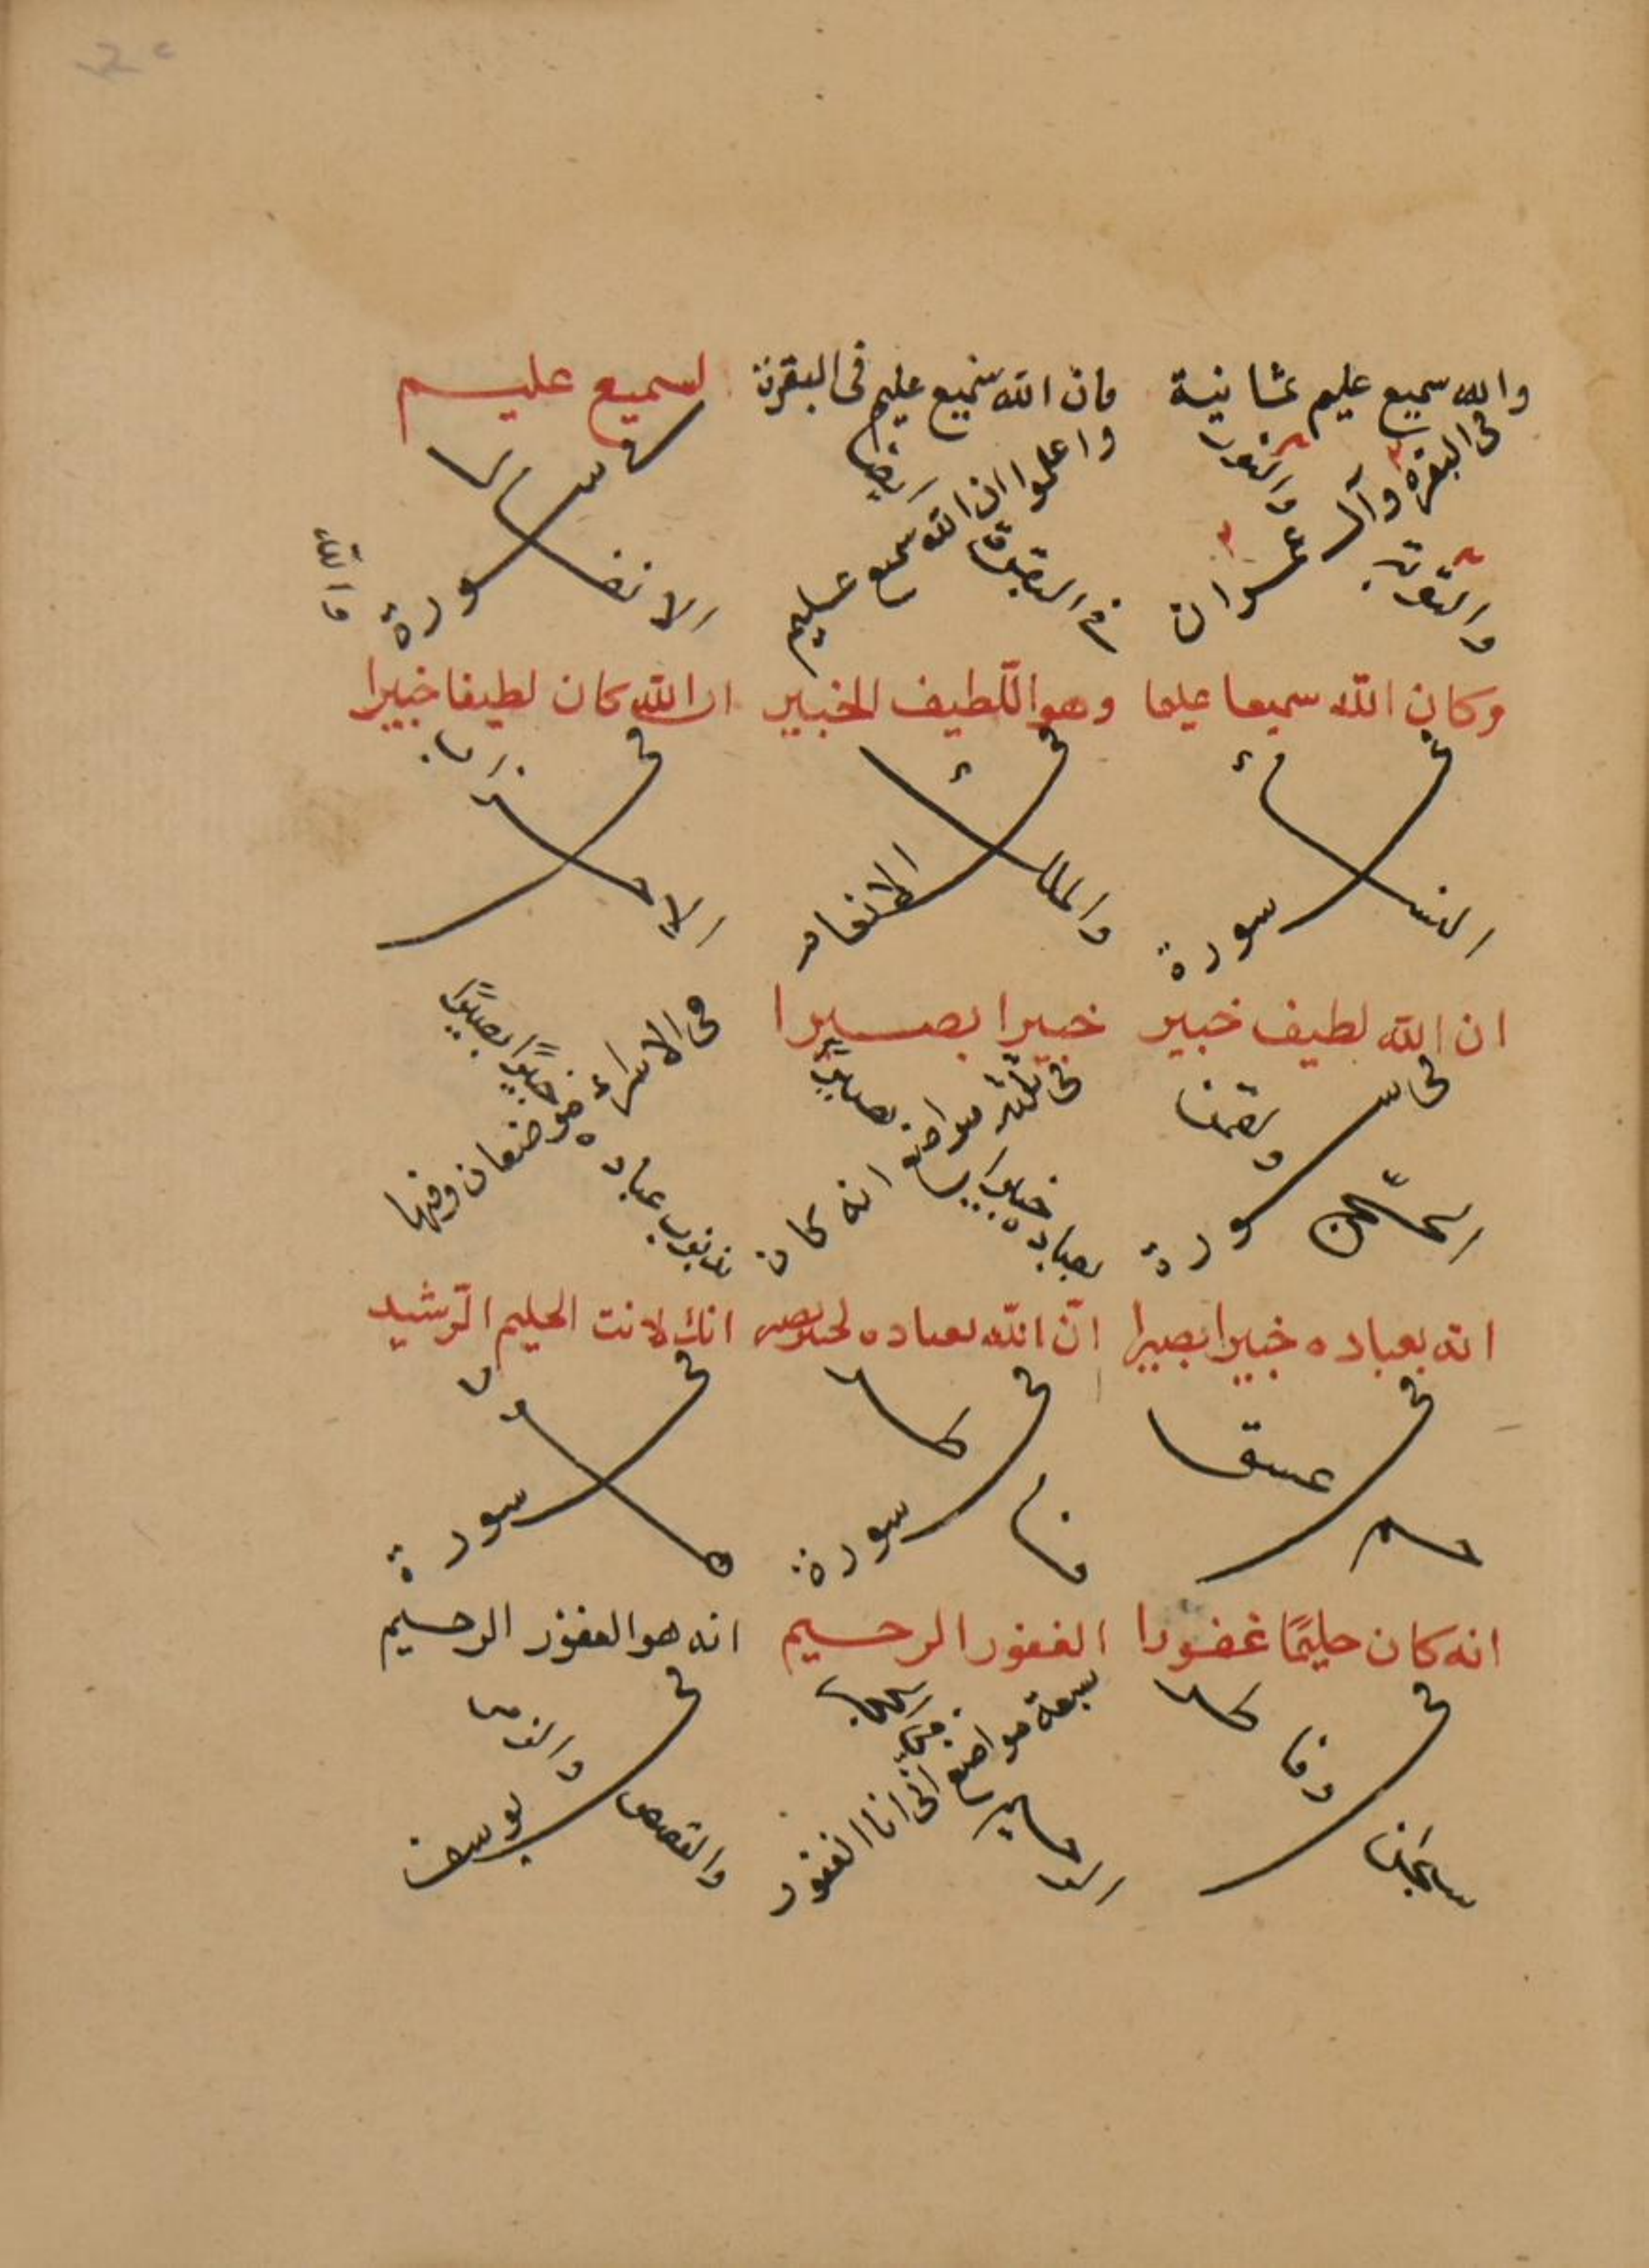 والله سميع عليم ثمانية
فى البقرة وآل عمران
والتوبة
والنور
فان الله سميع عليم فى البقرة
واعلموا ان الله سميع عليم
فى البقرة ايضا
لسميع عليم
فى سورة
الانفال
وكان الله سميعا عليما
فى سورة
النساء
وهو اللطيف الخبير
فى الانعام
والملك
ان الله كان لطيفا خبيرا
فى
الاحزاب
ان الله لطيف خبير
فى سورة
الحج
ولقمن
خبيرا بصيرا
فى ثلثة مواضع انه كان
بعباده خبيرا بصيرا
فى الاسراء موضعان وفيها
بذنوب عباده خبيرًا بصيرًا
انه بعباده خبيرا بصيرا
فى
حم عسق
انّ الله بعباده لخبير بصير
فى سورة
فاطر
انك لانت الحليم الرّشيد
فى سورة
هود
انه كان حليمًا غفورا
فى
سبحن وفاطر
الغفور الرحيم
سبعة مواضع
فى الحجر
انى انا الغفور
الرحيم
انه هو الغفور الرحيم
فى يوسف
والقصص والزمر